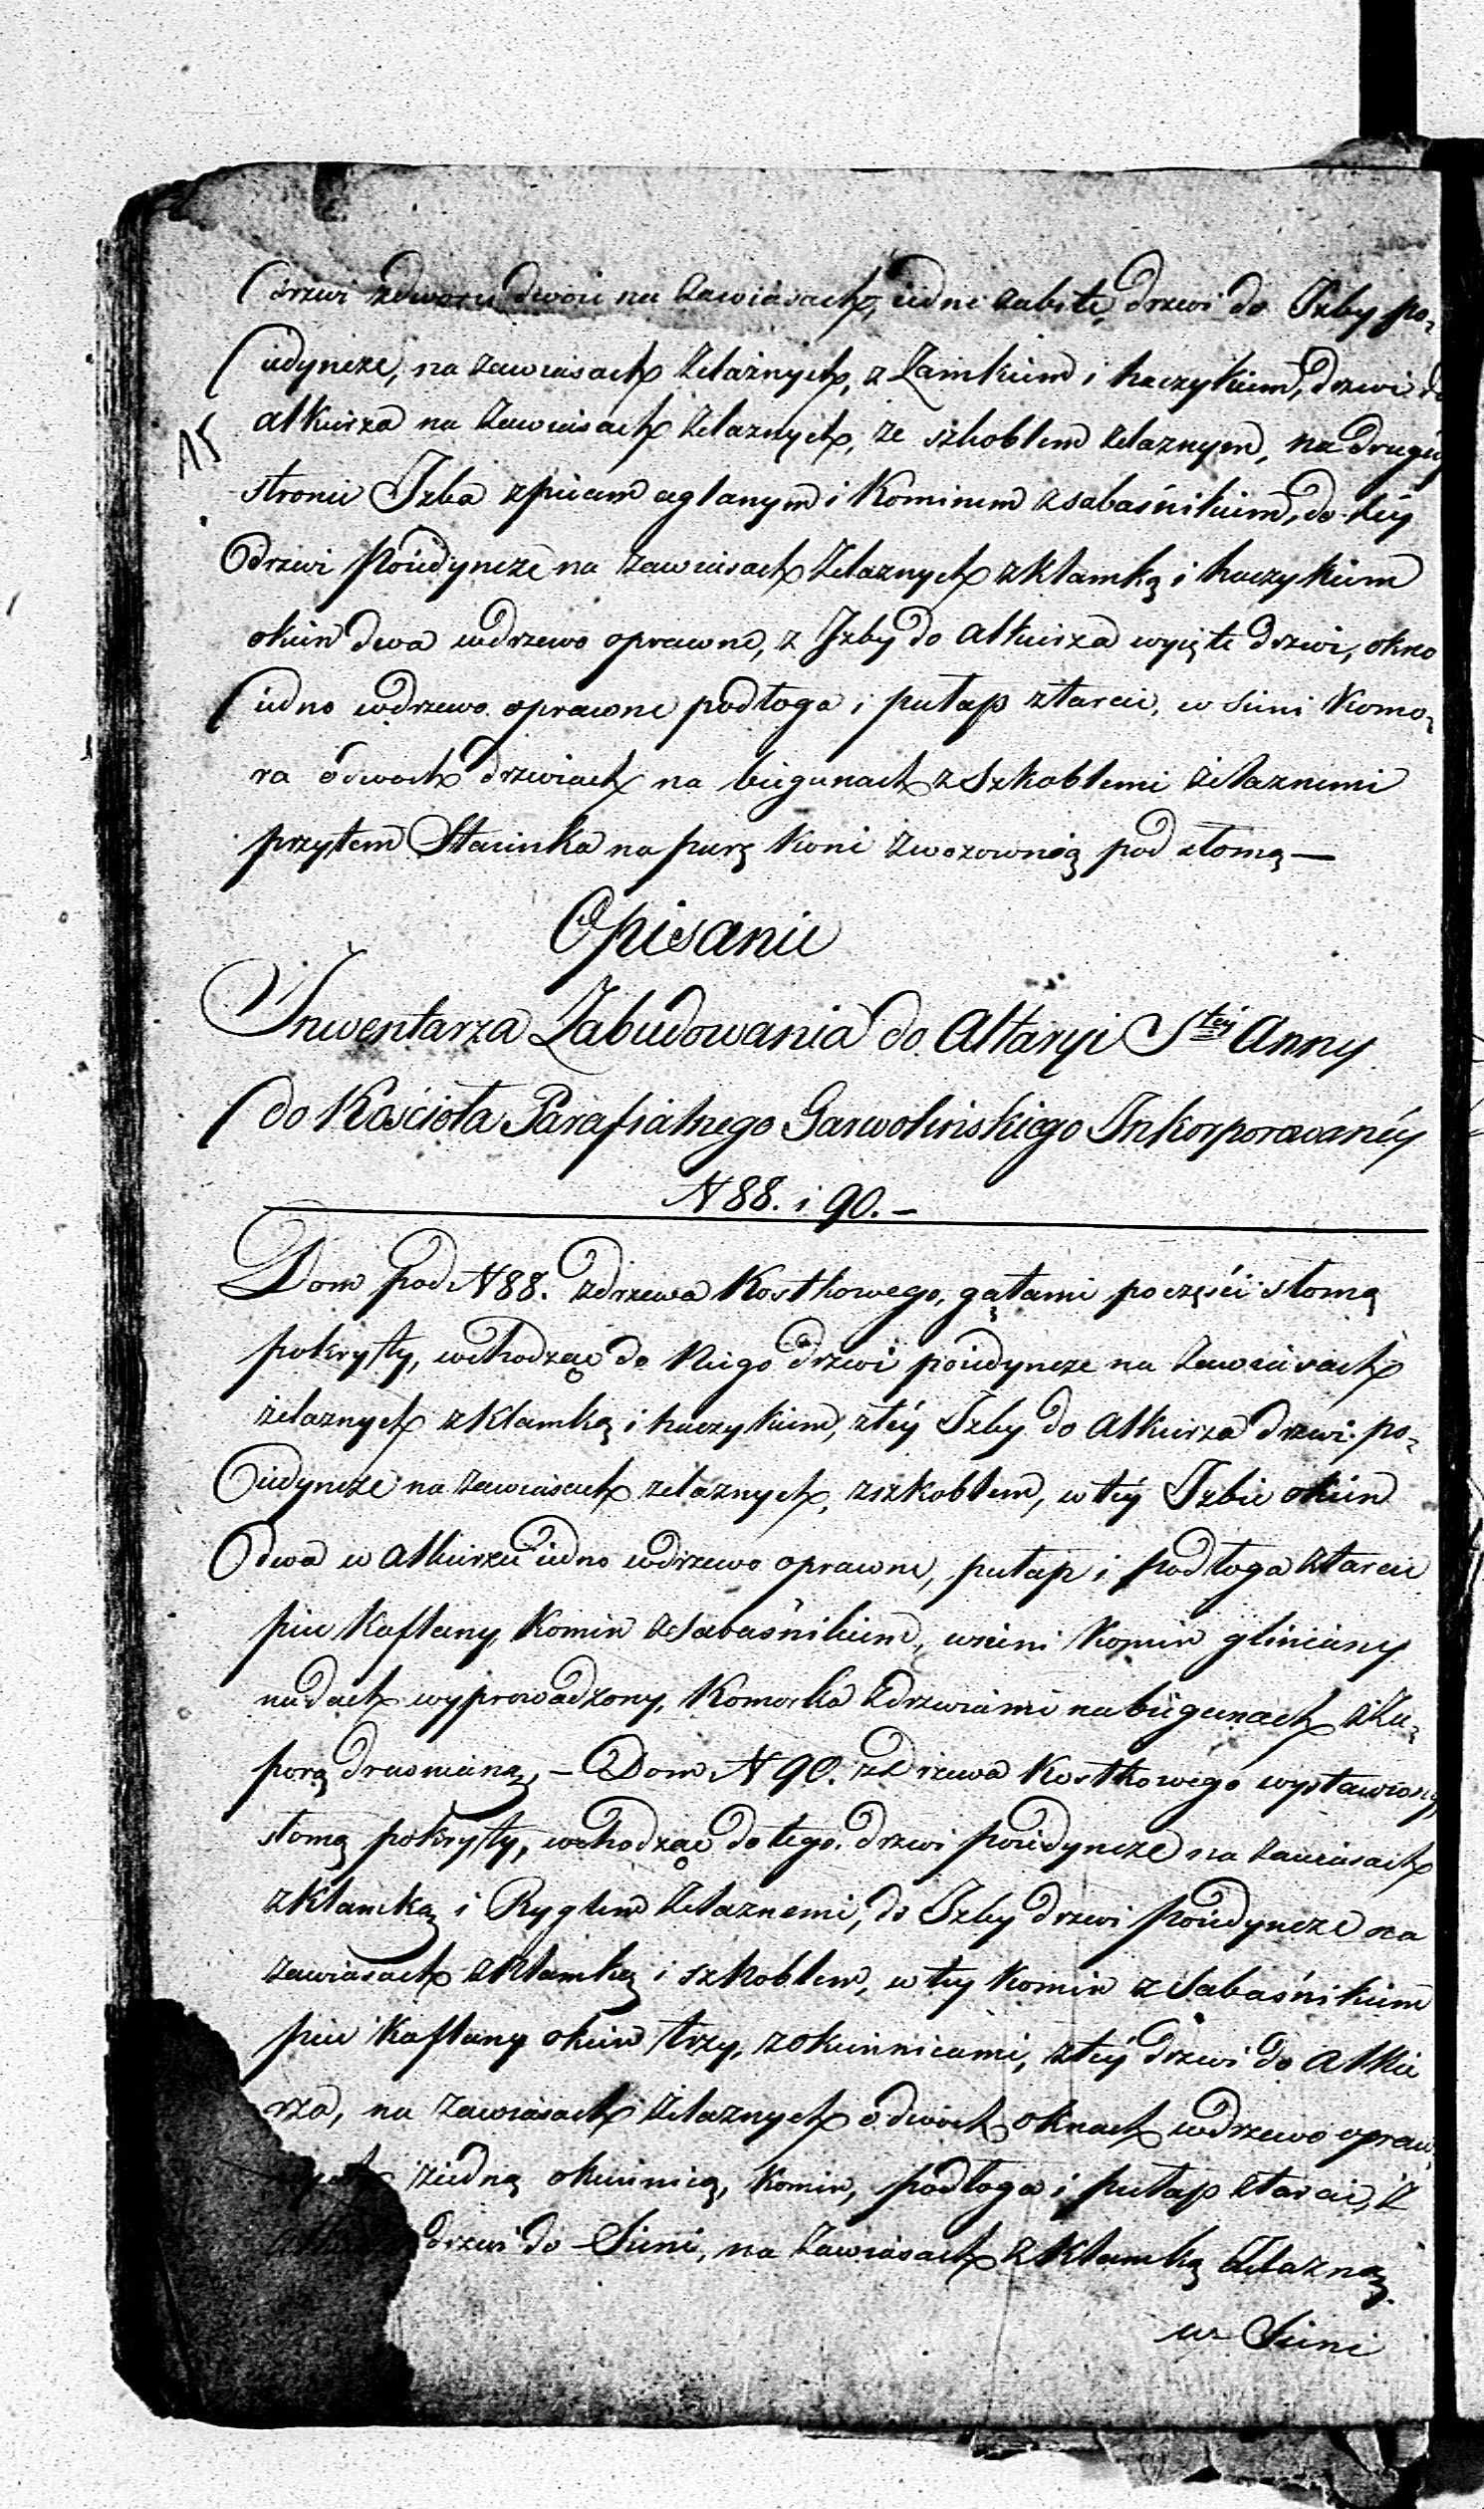 drzwi zdworu dwoie na zawiasach, iedne zabite, drzwi do Izby po=
iedyncze, na zawiasach żelaznych, z Zamkiem i haczykiem, drzwi do
15
alkierza na zawiasach żelaznych, ze szkoblem żelaznym, na drugiey
stronie Izba zpiecem ceglanym i Kominem zsabaśnikiem, do téy
drzwi poiedyncze na zawiasach żelaznych zklamką i haczykiem
okien dwa wdrzewo oprawne, z Izby do alkierza wyięte drzwi, okno
iedno wdrzewo oprawne podłoga i pułap ztarcic, w sieni Komo=
ra o dwoch drzwiach na biegunach z Szkoblemi żelaznemi
przytem Staienka na parę koni zwozownią pod słomą —
Opisanie
Inwentarza Zabudowania do Altaryi S<sup>téy</sup> Anny
do Kościoła Parafialnego Garwolińskiego Inkorporowanéy
N 88. i 90. —
Dom pod N 88. zdrzewa Kostkowego, gątami po części słomą
pokryty, wchodząc do Niego drzwi poiedyncze na zawiasach
żelaznych zklamką i haczykiem, ztéy Izby do alkierza drzwi po=
iedyncze na zawiasach zelaznych, zszkoblem, w téy Izbie okien
dwa w alkierzu iedno wdrzewo oprawne, pułap i podłoga ztarcic
piec kaflany, Komin zSabaśnikiem, wsieni Komin gliniany
nadach wyprowadzony, Komorka zdrzwiami na biegunach zku=
porą drewnianą, — Dom N 90. zdrzewa Kostkowego wystawiony
słomą pokryty, wchodząc do tego drzwi poiedyncze na zawiasach
zklamką i Ryglem żelaznemi, do Izby drzwi poiedyncze na
zawiasach zklamką i szkoblem, w téy Komin zSabaśnikiem
piec kaflany okien trzy, zokiennicami, ztéy drzwi do alkie
rza, na zawiasach żelaznych o dwóch oknach wdrzewo opraw=
nych ziedną okiennicą, Komin, podłoga i pułap ztarcic, z
drzwi do Sieni, na zawiasach zKlamką żelazną.
w Sieni